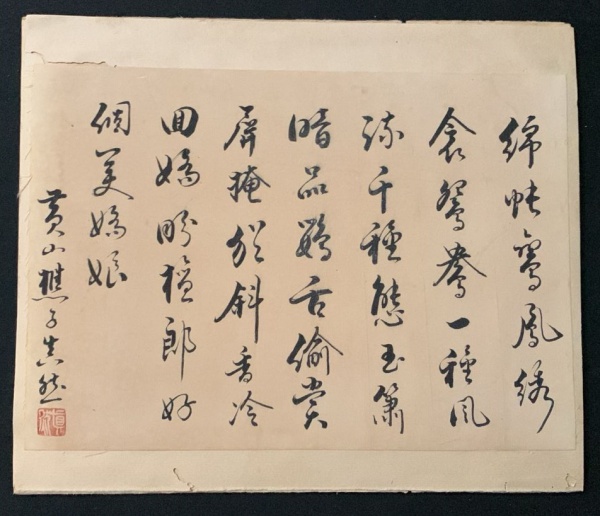 綿帳鸞鳳綉
衾鴛鴦一種風
流千種態玉簫
暗品鸚舌偷嘗
屏掩猶斜香冷
回嬌盼檀郎好
個美嬌娘
黄山樵子真然